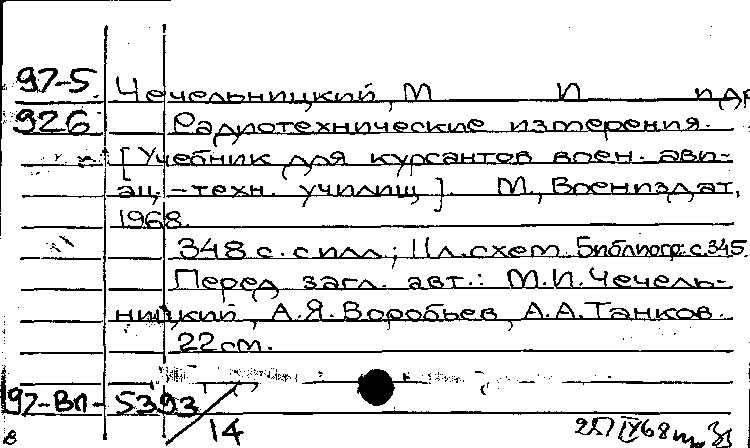 97-5 Чечельницкий, М И и др
926 Радиотехнические измерения.
[Учебник для курсантов воен. ави-
ац.-техн. училищ]. М., Воениздат,
1968.
348 с. с илл.; 11 л. схем. Библиогр. с. 345.
Перед загл. авт.: М.И. Чечель-
ницкий, А.Я. Воробьев, А.А. Танков.
22 см.
97-Вп-5393
14
в